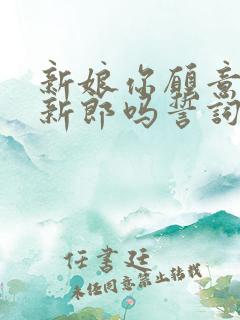 新娘你愿意
新郎吗誓词
任書廷
未经同意禁止转载